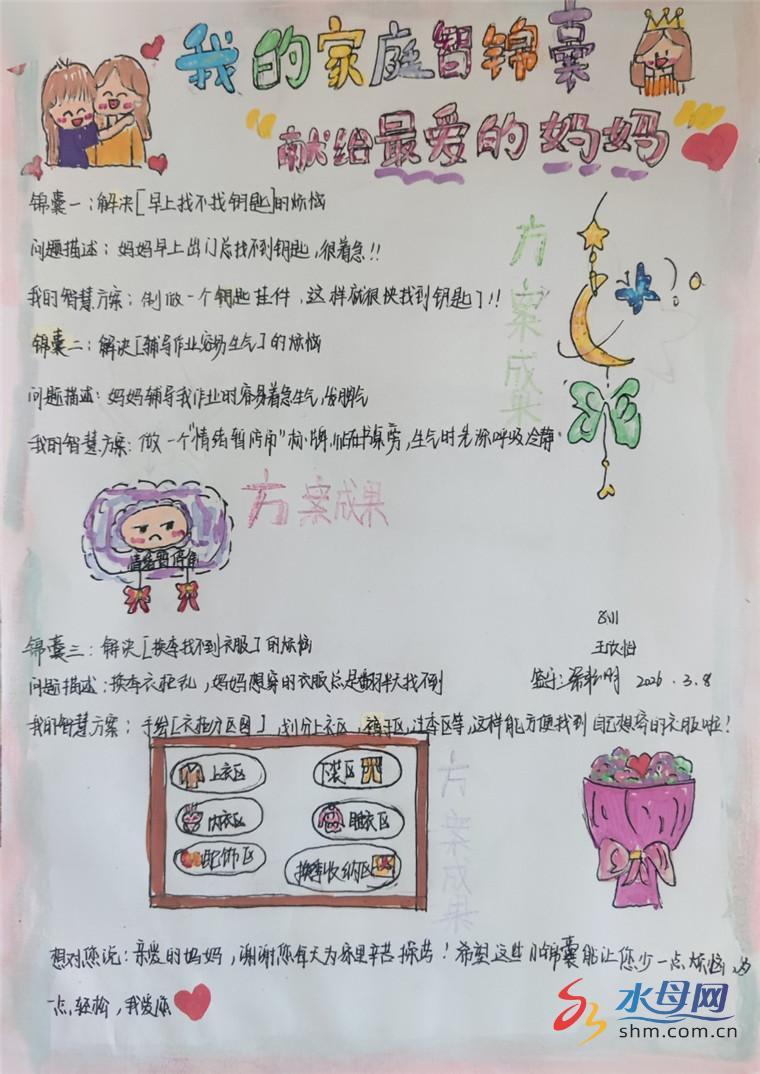 我的家庭智锦囊
"献给最爱的妈妈"
锦囊一：解决[早上找不找钥匙]的烦恼
问题描述：妈妈早上出门总找不到钥匙，很着急!!
我的智慧方案：制做一个钥匙挂件，这样就很快找到钥匙了!!
方案成果
锦囊二：解决[辅导作业容易生气]的烦恼
问题描述：妈妈辅导我作业时容易着急生气，发脾气
我的智慧方案：做一个"情绪暂停角"标牌，贴在书桌旁，生气时先深呼吸冷静。
方案成果
情绪暂停角
锦囊三：解决[换季找不到衣服]的烦恼
王欣怡
问题描述：换季衣柜乱，妈妈想穿的衣服总是翻半天找不到
签字： 2026.3.8
我的智慧方案：手绘[衣柜分区图]，划分上衣区、裤子区，过季区等，这样能方便找到自己想穿的衣服啦！
上衣区
下装区
内衣区
睡衣区
配饰区
换季收纳区
方案成果
想对您说：亲爱的妈妈，谢谢您每天为家里辛苦操劳！希望这些小锦囊能让您少一点烦恼，多
一点轻松，我爱您
水母网
shm.com.cn